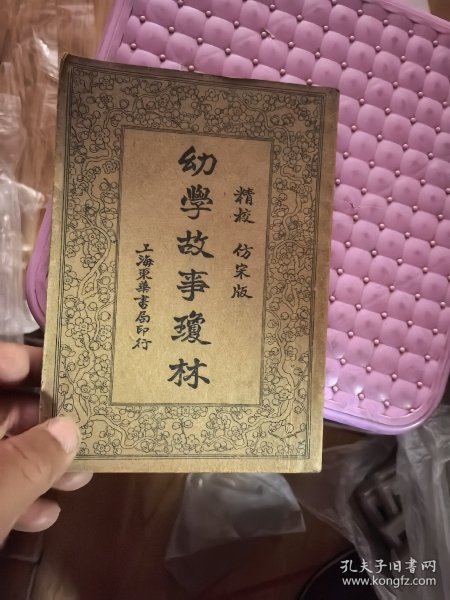 精校 仿宋版
幼學故事瓊林
上海東華書局印行
孔夫子旧书网
www.kongfz.com